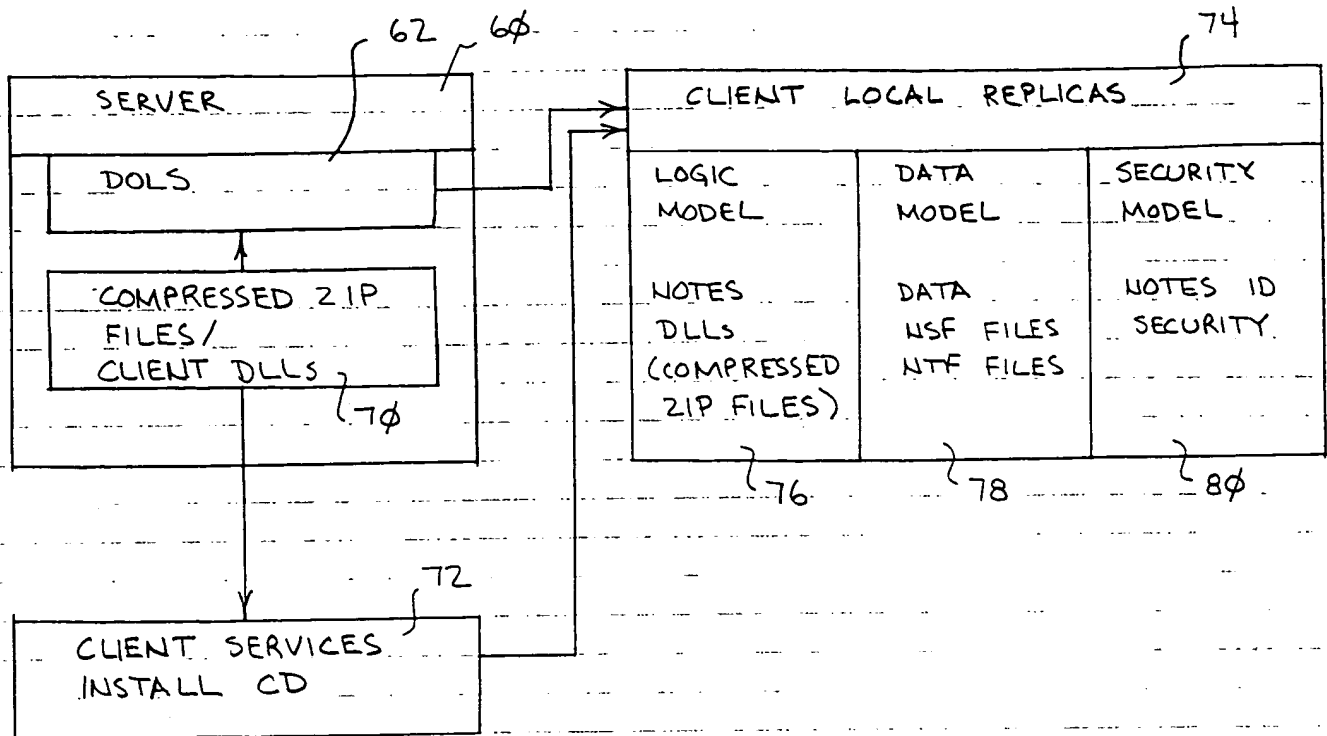 62
6φ
74
SERVER
DOLS
COMPRESSED ZIP
FILES/
CLIENT DLLS
7φ
CLIENT LOCAL REPLICAS
LOGIC
MODEL
NOTES
DLLs
(COMPRESSED
ZIP FILES)
76
DATA
MODEL
DATA
NSF FILES
NTF FILES
78
SECURITY
MODEL
NOTES ID
SECURITY
8φ
72
CLIENT SERVICES
INSTALL CD